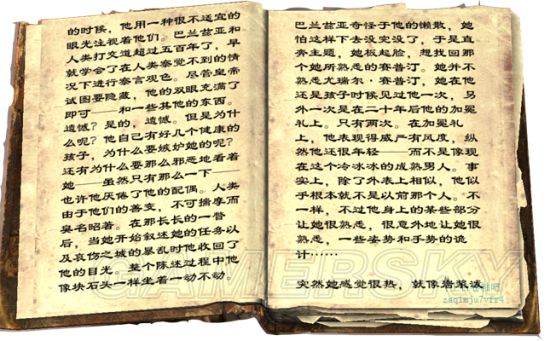 的时候，他用一种很不适宜的
眼光注视着他们。巴兰兹亚和
人类打交道超过五百年了，早
就学会了在人类察觉不到的情
况下进行察言观色。尽管皇帝
试图要隐藏，他的双眼充满了
即可——和一些其他的东西。
遗憾？是的，遗憾。但是为什
么呢？他自己有好几个健康的
孩子，为什么要嫉妒她的呢？
还有为什么要那么邪恶地看着
她——虽然只有那么一下——
也许他厌倦了他的配偶。人类
由于他们的善变，不可揣摩而
臭名昭著。在那长长的一瞥
以后，当她开始叙述她的任务以
及哀伤之城的暴乱时他收回了
他的目光。整个陈述过程中他
像块石头一样坐着一动不动。
巴兰兹亚奇怪于他的懒散，她
怕这样下去没完没了，于是直
奔主题，她板起脸，想找回那
个她所熟悉的赛普汀。她并不
熟悉尤瑞尔·赛普汀，她在他
还是孩子时候见过他一次，另
外一次是在二十年后他的加冕
礼上。只有两次。在加冕礼
上，他表现得威严有风度，纵
然他还很年轻——而不是像现
在这个冷冰冰的成熟男人。事
实上，除了外表上相似，他似
乎根本就不是以前那个人。不
一样，不过他身上的某些部分
让她很熟悉，很意外地让她很
熟悉，一些姿势和手势的诡
计……
突然她感觉很热，就像岩浆泼
GAMERSKY
zaqimju7vfr4